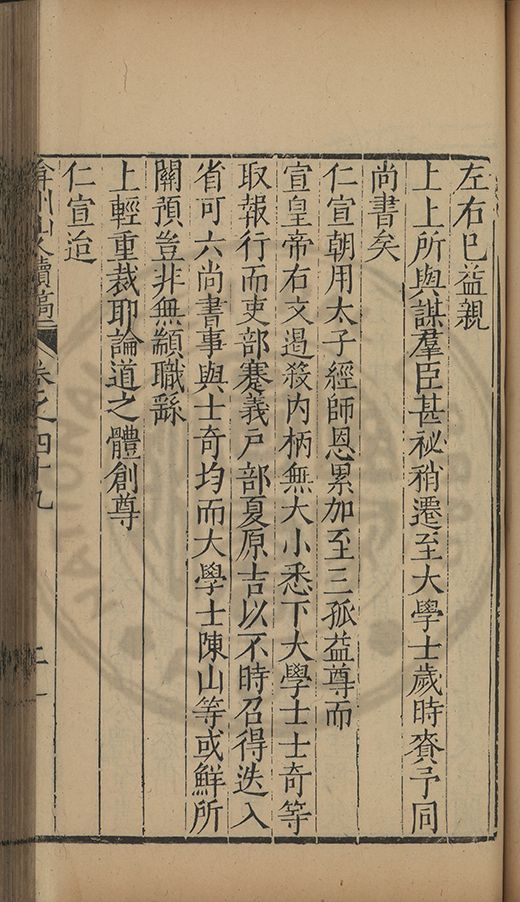 左右已益親
上上所與謀羣臣甚祕稍遷至大學士歲時賚予同
尚書矣
仁宣朝用太子經師恩累加至三孤益尊而
宣皇帝右文遏殺內柄無大小悉下大學士士奇等
取報行而吏部蹇義戶部夏原吉以不時召得迭入
省可六尚書事與士奇均而大學士陳山等或鮮所
關預豈非無顓職繇
上輕重裁耶論道之體創尊
仁宣迨
弇州山人續稿 卷之四十九